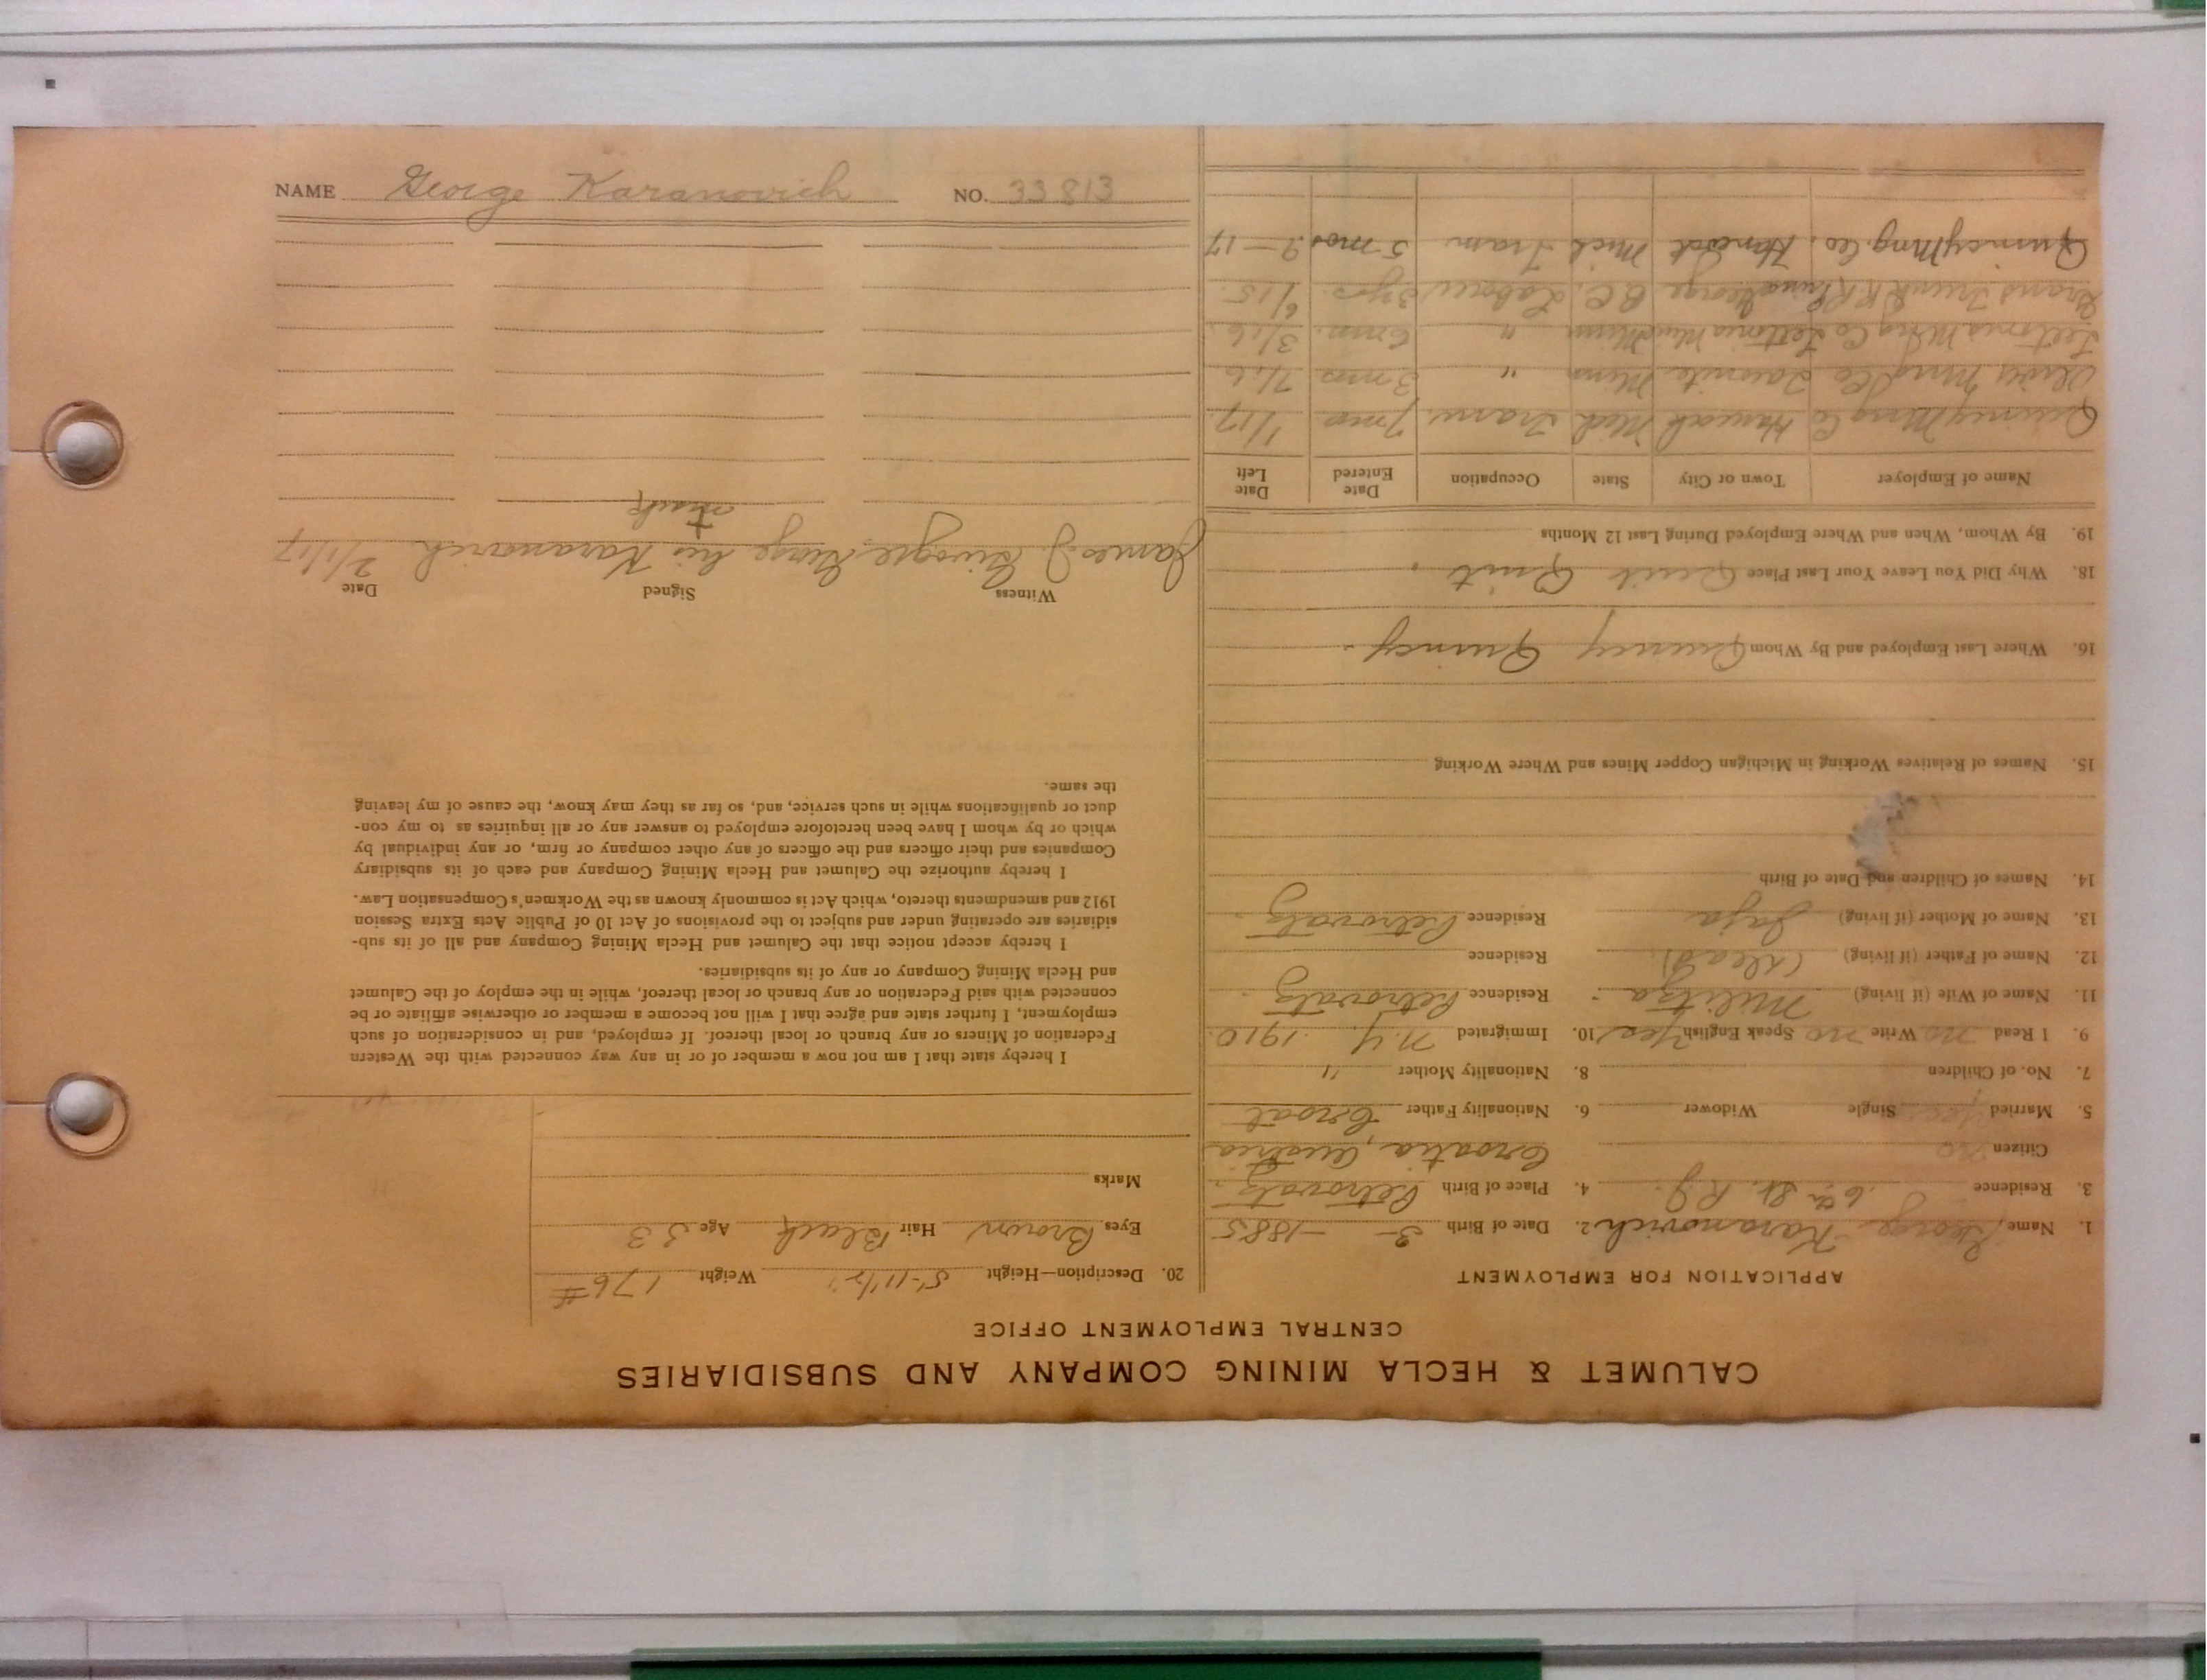 CALUMET & HECLA MINING COMPANY AND SUBSIDIARIES
CENTRAL EMPLOYMENT OFFICE
APPLICATION FOR EMPLOYMENT
1. Name George Karanovich 2. Date of Birth 3 — 1885
3. Residence 6th St. R.J. 4. Place of Birth Petrovatz
Citizen no Croatia, Austria
5. Married yes Single Widower 6. Nationality Father Croat
7. No. of Children 8. Nationality Mother "
9. I Read no Write no Speak English Yes 10. Immigrated N.Y. 1910.
11. Name of Wife (if living) Militza Residence Petrovatz
12. Name of Father (if living) (dead) Residence
13. Name of Mother (if living) Residence Petrovatz
14. Names of Children and Date of Birth
15. Names of Relatives Working in Michigan Copper Mines and Where Working
16. Where Last Employed and By Whom Quincy Quincy.
18. Why Did You Leave Your Last Place Quit Quit.
19. By Whom, When and Where Employed During Last 12 Months
Name of Employer Town or City State Occupation Date Entered Date Left
Quincy Mng Co Hancock Mich Tram. 7 mos 1/17
Oliver Mng Co Taconite Minn " 3 mos 7/16
Mng Co Minn " 6 mos. 3/16.
Grand Trunk RR Prince George B.C. Laborer 3 yrs. 6/15.
Quincy Mng. Co. Hancock Mich Tram 5 mos. 9-17
20. Description—Height 5'-11 1/2" Weight 176#
Eyes Brown Hair Black Age 33
Marks
I hereby state that I am not now a member of or in any way connected with the Western
Federation of Miners or any branch or local thereof. If employed, and in consideration of such
employment, I further state and agree that I will not become a member or otherwise affiliate or be
connected with said Federation or any branch or local thereof, while in the employ of the Calumet
and Hecla Mining Company or any of its subsidiaries.
I hereby accept notice that the Calumet and Hecla Mining Company and all of its sub-
sidiaries are operating under and subject to the provisions of Act 10 of Public Acts Extra Session
1912 and amendments thereto, which Act is commonly known as the Workmen's Compensation Law.
I hereby authorize the Calumet and Hecla Mining Company and each of its subsidiary
Companies and their officers and the officers of any other company or firm, or any individual by
which or by whom I have been heretofore employed to answer any or all inquiries as to my con-
duct or qualifications while in such service, and, so far as they may know, the cause of my leaving
the same.
Witness Signed Date
James J. George his Karanovich 2/1/17
mark
NAME George Karanovich NO. 33813